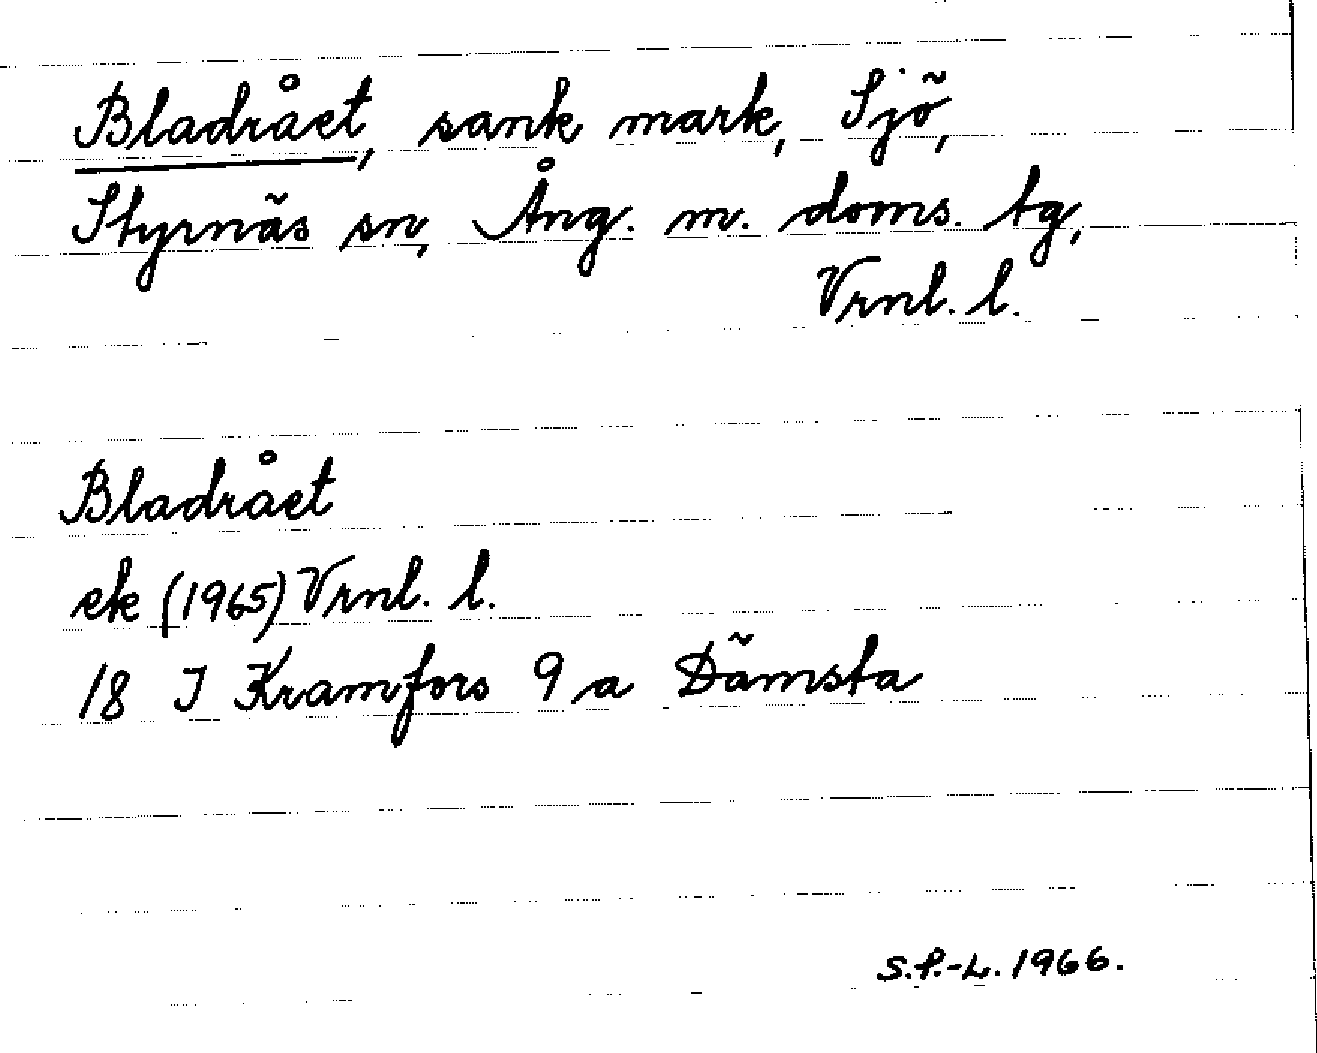 Bladrået, sank mark, Sjö,
Styrnäs sn, Ång. m. doms. tg,
Vrnl. l.
Bladrået
ek (1965) Vrnl. l.
18 I Kramfors 9 a Dämsta
S.P.-L. 1966.